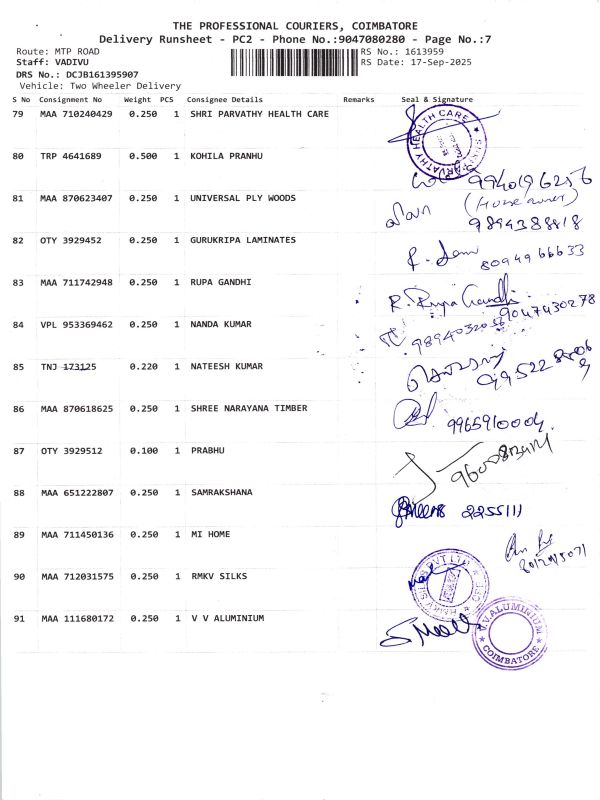 THE PROFESSIONAL COURIERS, COIMBATORE
Delivery Runsheet - PC2 - Phone No.:9047080280 - Page No.:7
Route: MTP ROAD RS No.: 1613959
Staff: VADIVU RS Date: 17-Sep-2025
DRS No.: DCJB161395907
Vehicle: Two Wheeler Delivery
S No Consignment No Weight PCS Consignee Details Remarks Seal & Signature
79 MAA 710240429 0.250 1 SHRI PARVATHY HEALTH CARE
80 TRP 4641689 0.500 1 KOHILA PRANHU
9940196256
81 MAA 870623407 0.250 1 UNIVERSAL PLY WOODS
(House owner)
9894388818
82 OTY 3929452 0.250 1 GURUKRIPA LAMINATES
8094966633
83 MAA 711742948 0.250 1 RUPA GANDHI
R. Rupa Gandhi
9047430278
84 VPL 953369462 0.250 1 NANDA KUMAR
9894032056
85 TNJ 173125 0.220 1 NATEESH KUMAR
86 MAA 870618625 0.250 1 SHREE NARAYANA TIMBER
9965910004.
87 OTY 3929512 0.100 1 PRABHU
88 MAA 651222807 0.250 1 SAMRAKSHANA
2255111
89 MAA 711450136 1 MI HOME 0.250
90 MAA 712031575 0.250 1 RMKV SILKS
91 MAA 111680172 0.250 1 V V ALUMINIUM
V.V.ALUMINIUM
COIMBATORE